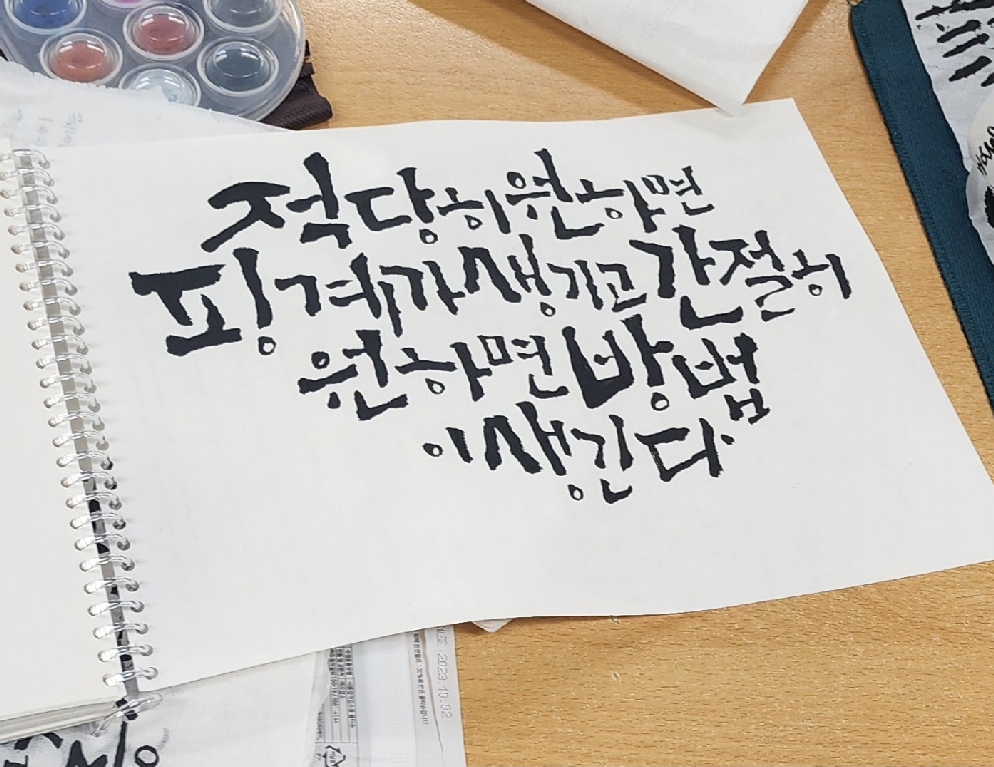 적당히 원하면
핑계가 생기고 간절히
원하면 방법
이 생긴다
2023.10.02